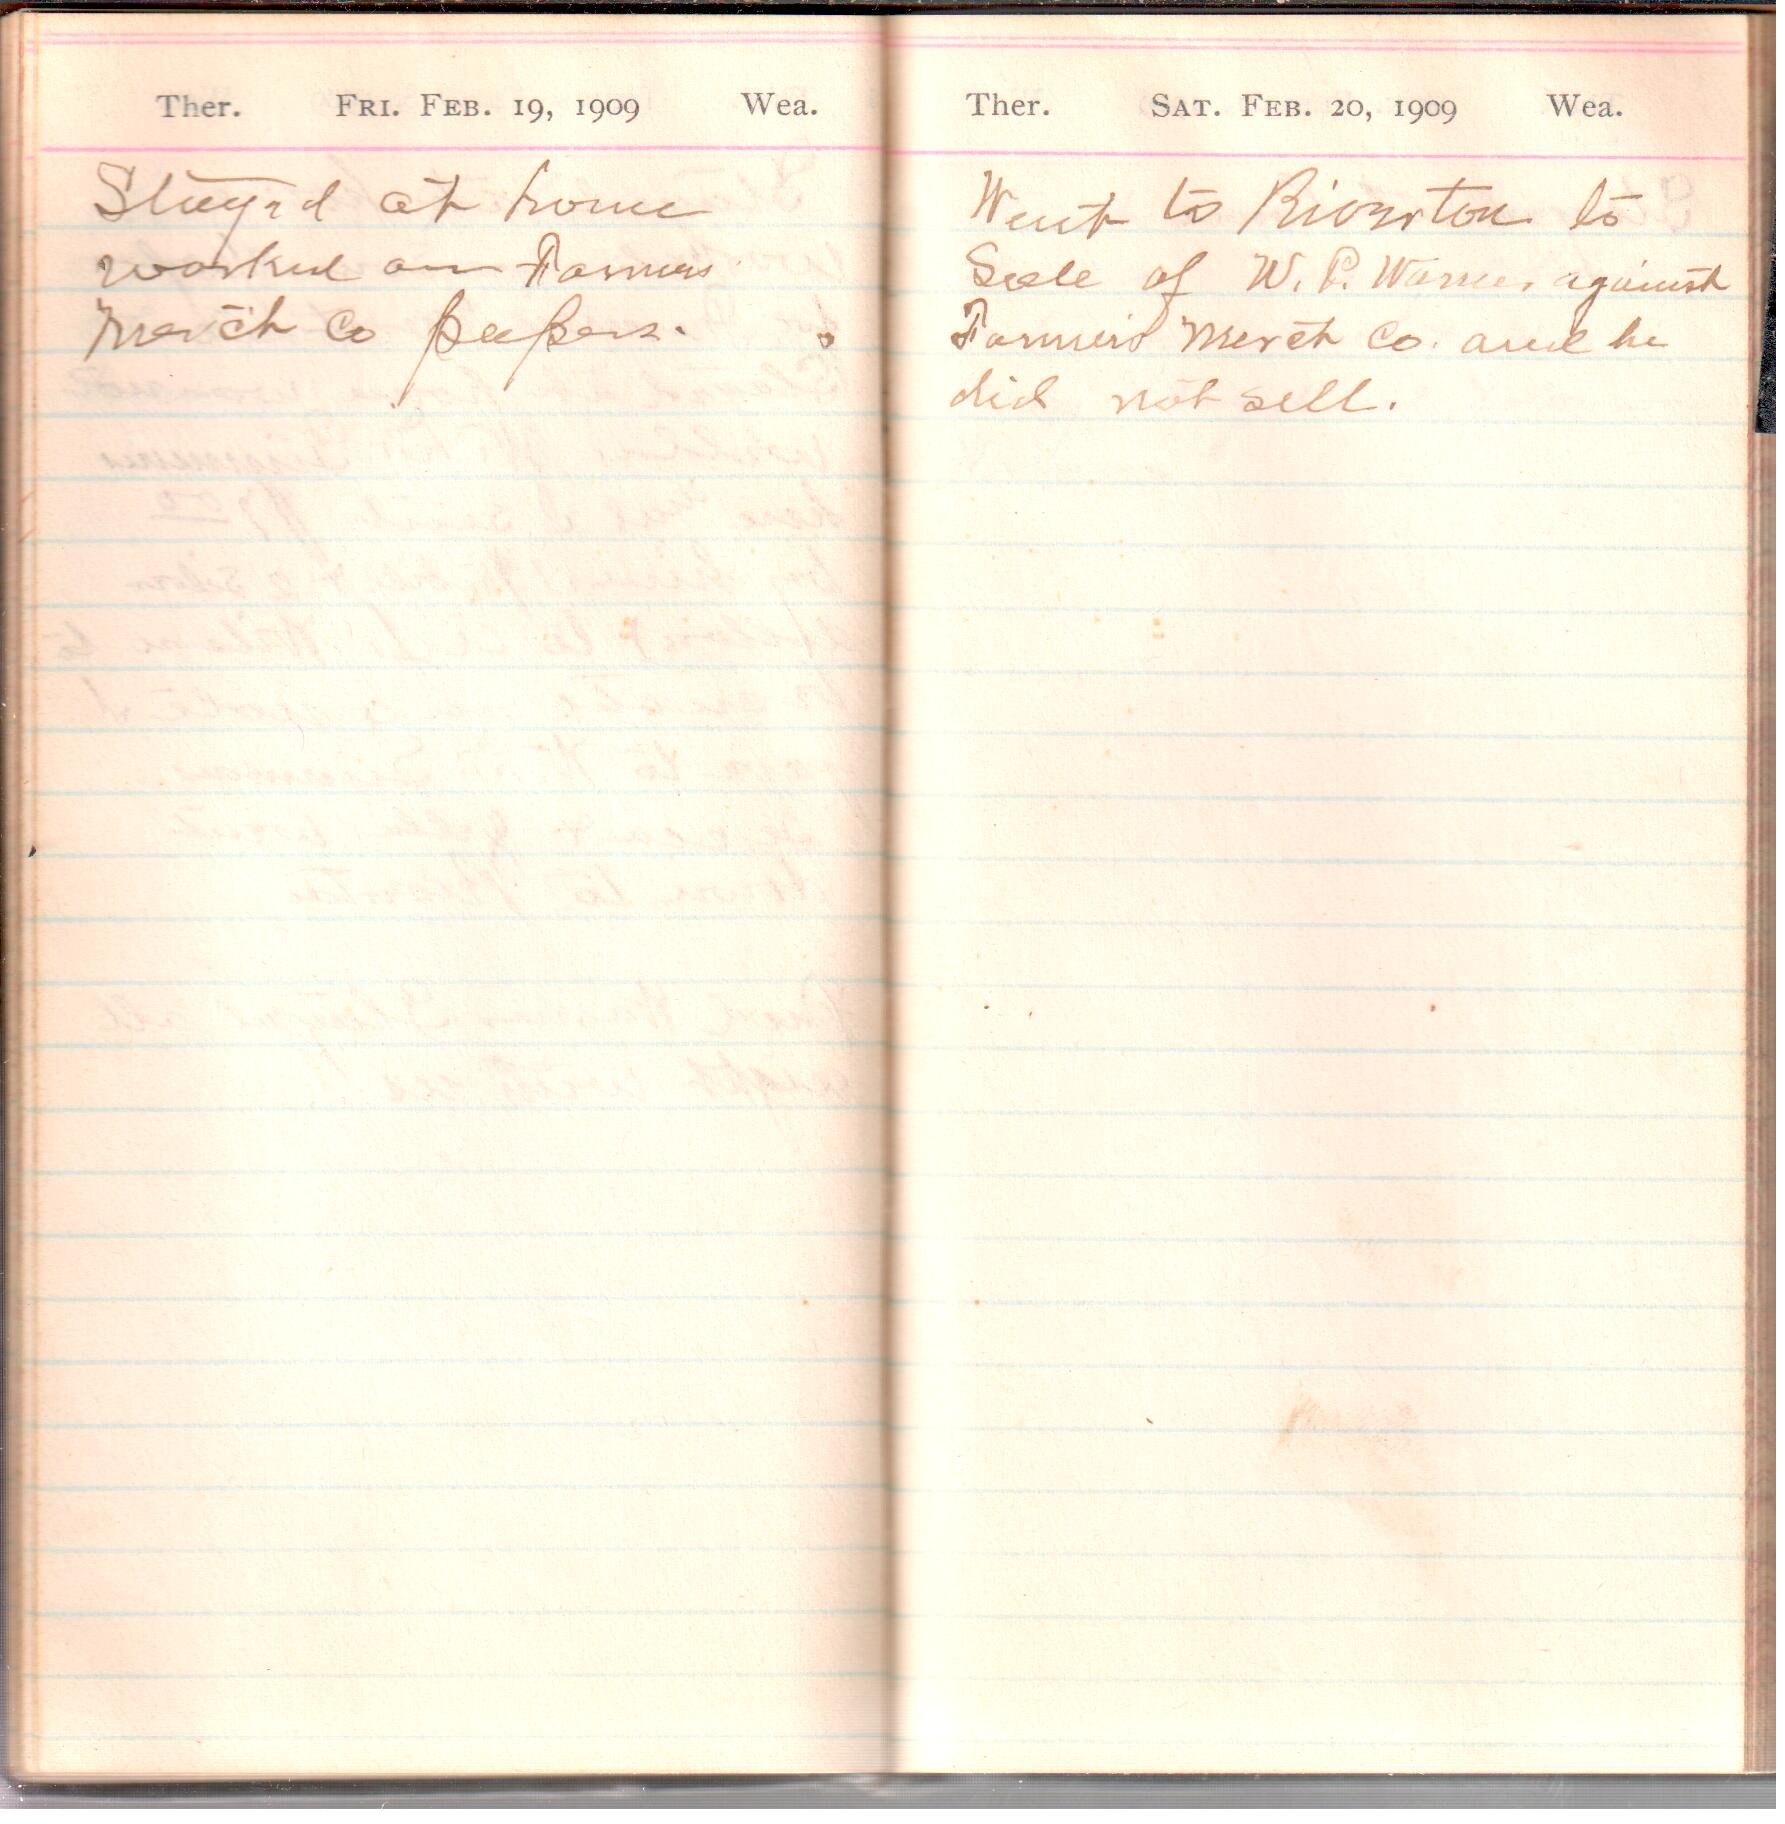 Ther. FRI. FEB. 19, 1909 Wea.
Stayed at home
worked on Farmers
Merch Co papers.
Ther. SAT. FEB. 20, 1909 Wea.
Went to Riverton to
Sale of W. P. Warner against
Farmers Merch Co. and he
did not sell.